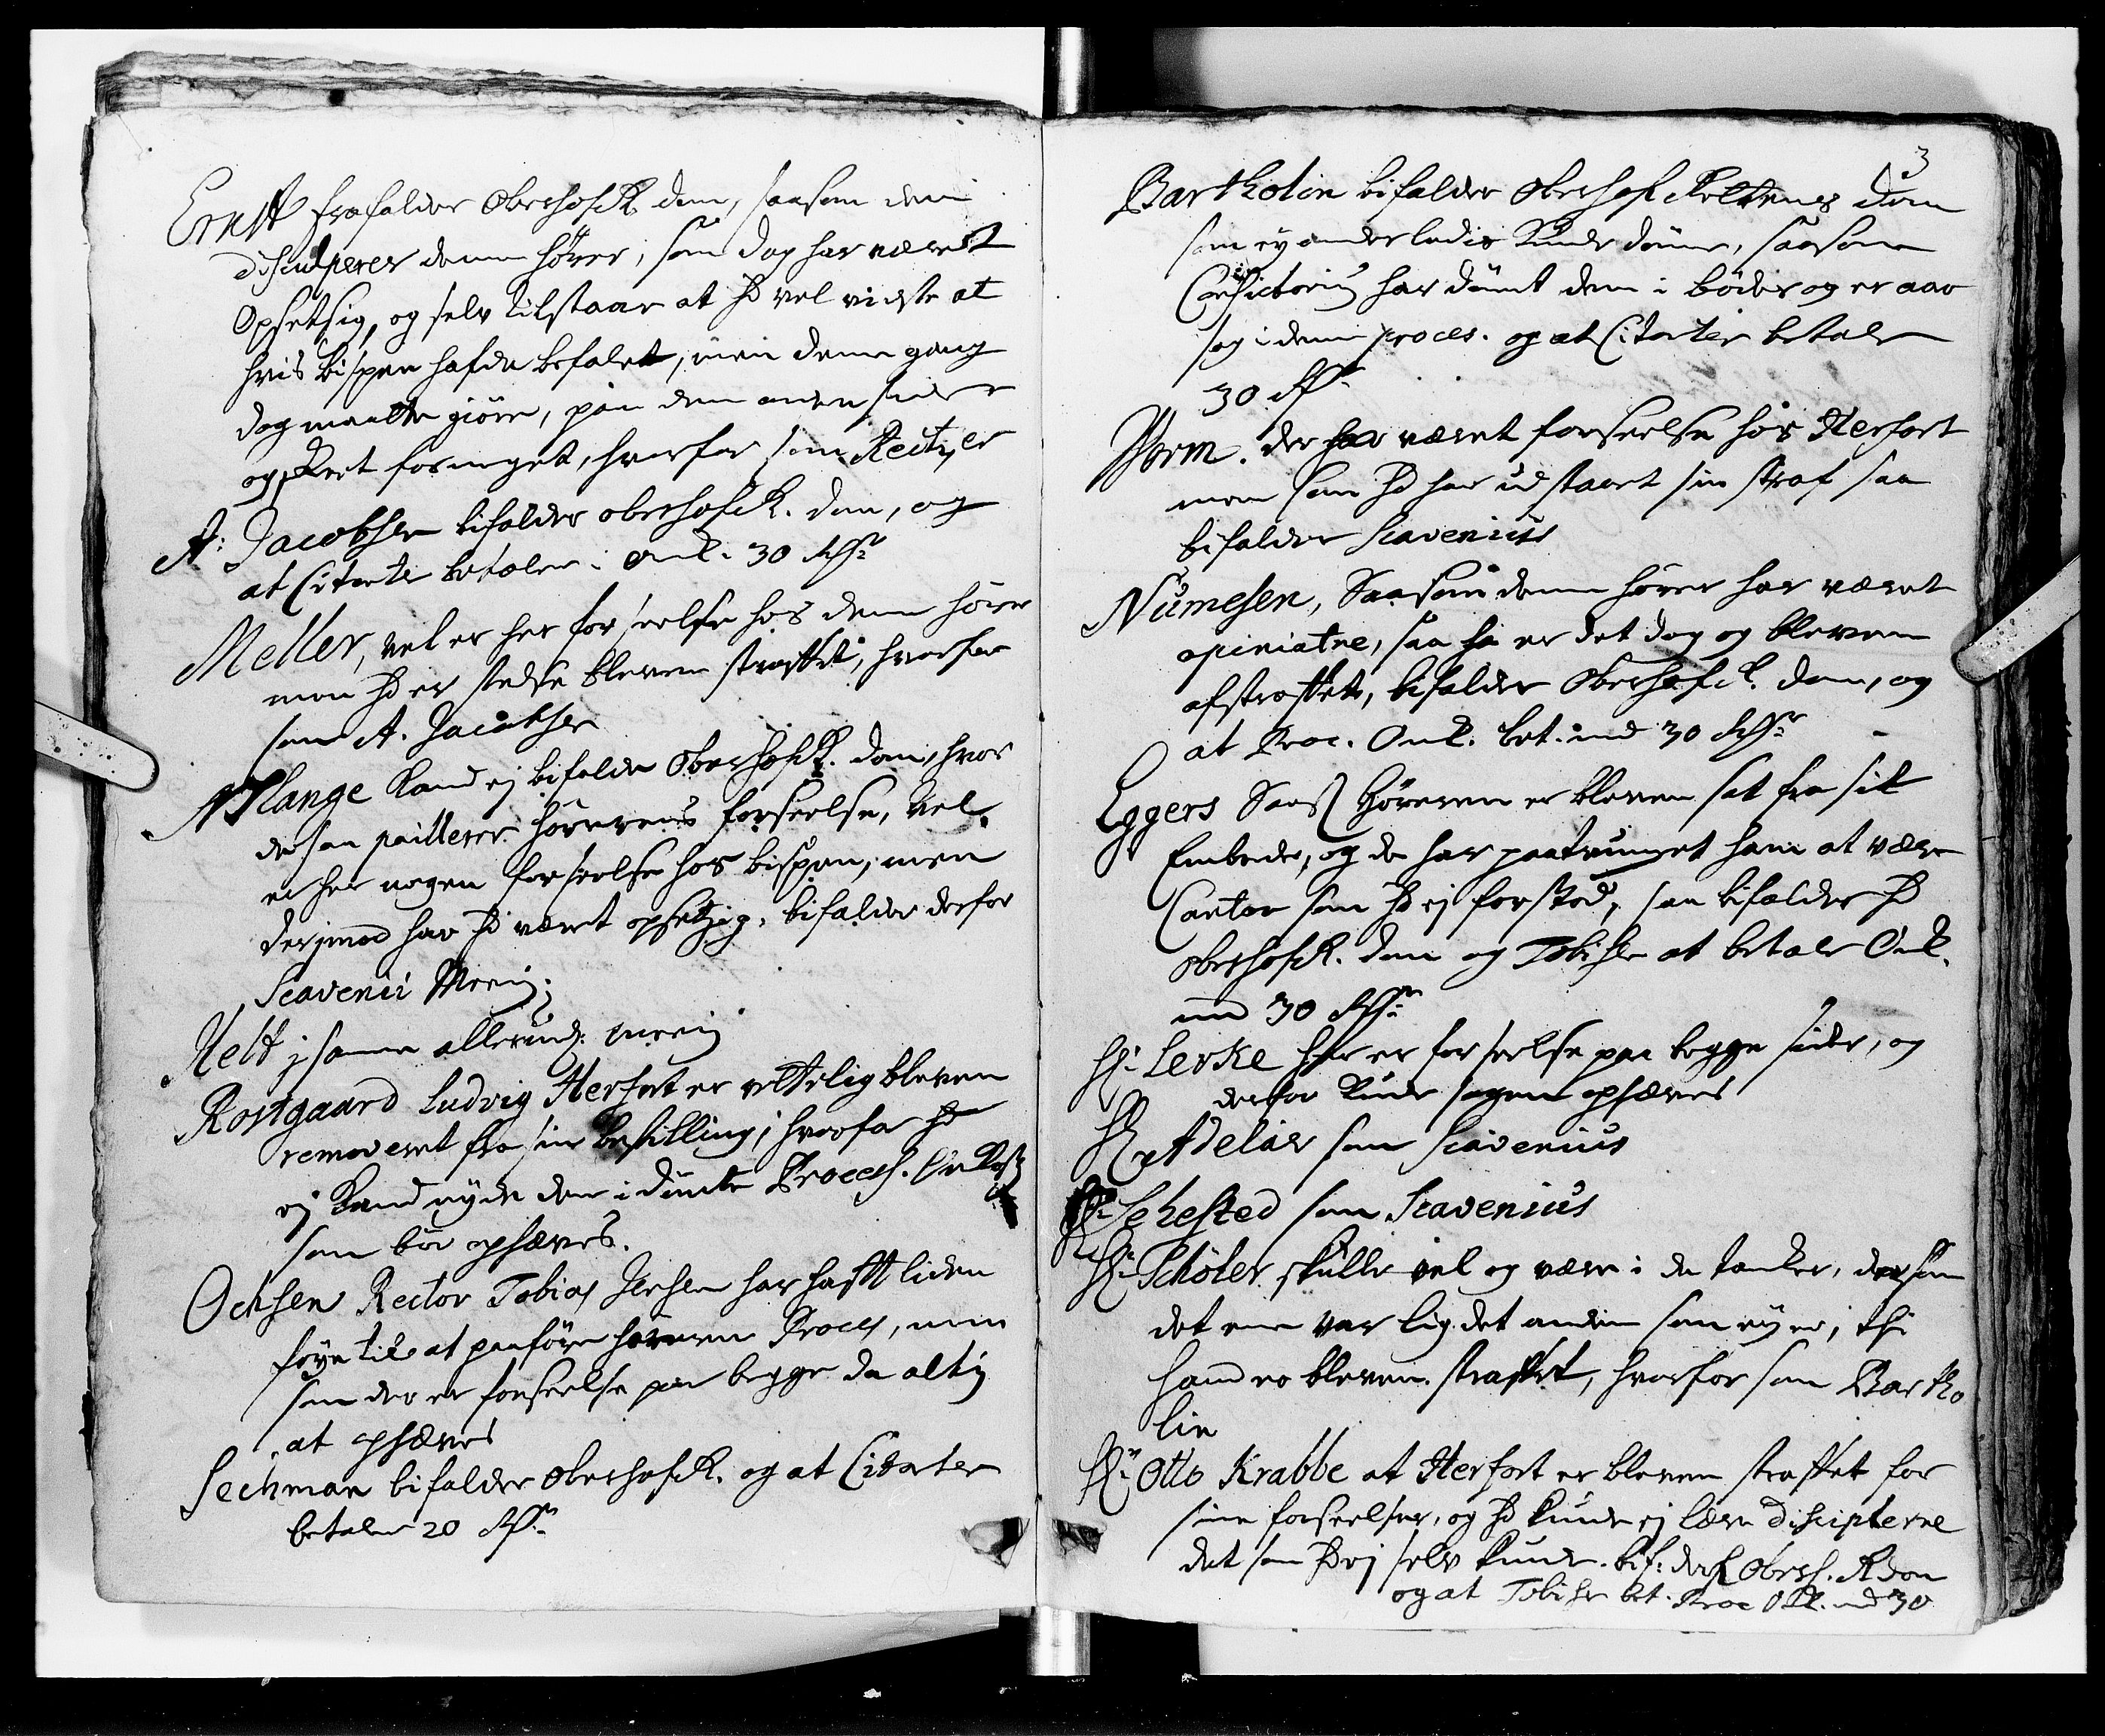 Ernst frafalder Oberhofr. dom, saasom den
disculperer denne hører, som dog har været
Opsetsig, og selv tilstaar at hd vel vidste at
hvis bispen hafde befalet, men denne gang
dog maatte giøre, paa den anden side er
og skeet for meget, hvorfor som Rect. er
A: Jacobsen bifalder oberhofr. dom, og
at Citante betaler i omk. 30 Rdr
Meller, vel er her forseelse hos denne hører
men hd er stedse bleven straffet, hvorfor
som A. Jacobsen
N Slange Kand ej bifalde Oberhofr. dom, hvor
de saa pallierer hørerens forseelse, vel
er her nogen forseelse hos bispen, men
derjmod har hd været opsetzig, bifalder derfor
Scavenii Mening.
Helt j samme allerund. mening
Rostgaard Ludvig Herfort er rettelig bleven
removeret fra sin bestilling, hvorfor hd
ej Kand nyde den idømte Process. Omkost
som bør ophæves.
Ochsen Rector Tobias Jensen har hafft liden
føye til at paaføre høreren Proces, men
som der er forseelse paa begge da alting
at ophæves
Sechman bifalder Oberhofr. og at Citanten
betaler 20 Rdr

3
Bartholin bifalder Oberhof Rettens dom
som ey anderledis Kunde dømme, saasom
Consistorium har dømt dem i bøder og er aar
sag i denne proces. og at Citanten betaler
30 Rdr
Worm. der har været forseelse hos Herfort
men som hd har udstaaet sin straf saa
bifalder Scavenius
Numesen, Saasom denne hører har været
opiniatre, saa er det dog og bleven
afstraffet, bifalder Oberhofr. dom, og
at Proc. Omk. bet. med 30 Rdr
Eggers Saas Høreren er bleven sat fra sit
Embede, og de har paatvunget ham at være
Cantor som hd ej forstod, saa bifalder hd
Oberhofr. dom og Tobisen at betale Omk.
med 30 Rdr
Hr. Levke Her er forseelse paa begge sider, og
derfor Kunde sagen ophæves
Hr Adeler som Scavenius
Hr. Sehested som Scavenius
Hr. Schøler skulle vel og være i de tanker, dersom
det eene var lig det andet som ey er, thi
hand er bleven straffet, hvorfor som Bartho
lin
Hr. Otto Krabbe at Herfort er bleven straffet for
sine forseelser, og hd kunde ej lære disciplerne
det som hd ej selv kunde. bif: derf. Obersh. R dom
og at Tobisen bet. Proc Omk. med 30